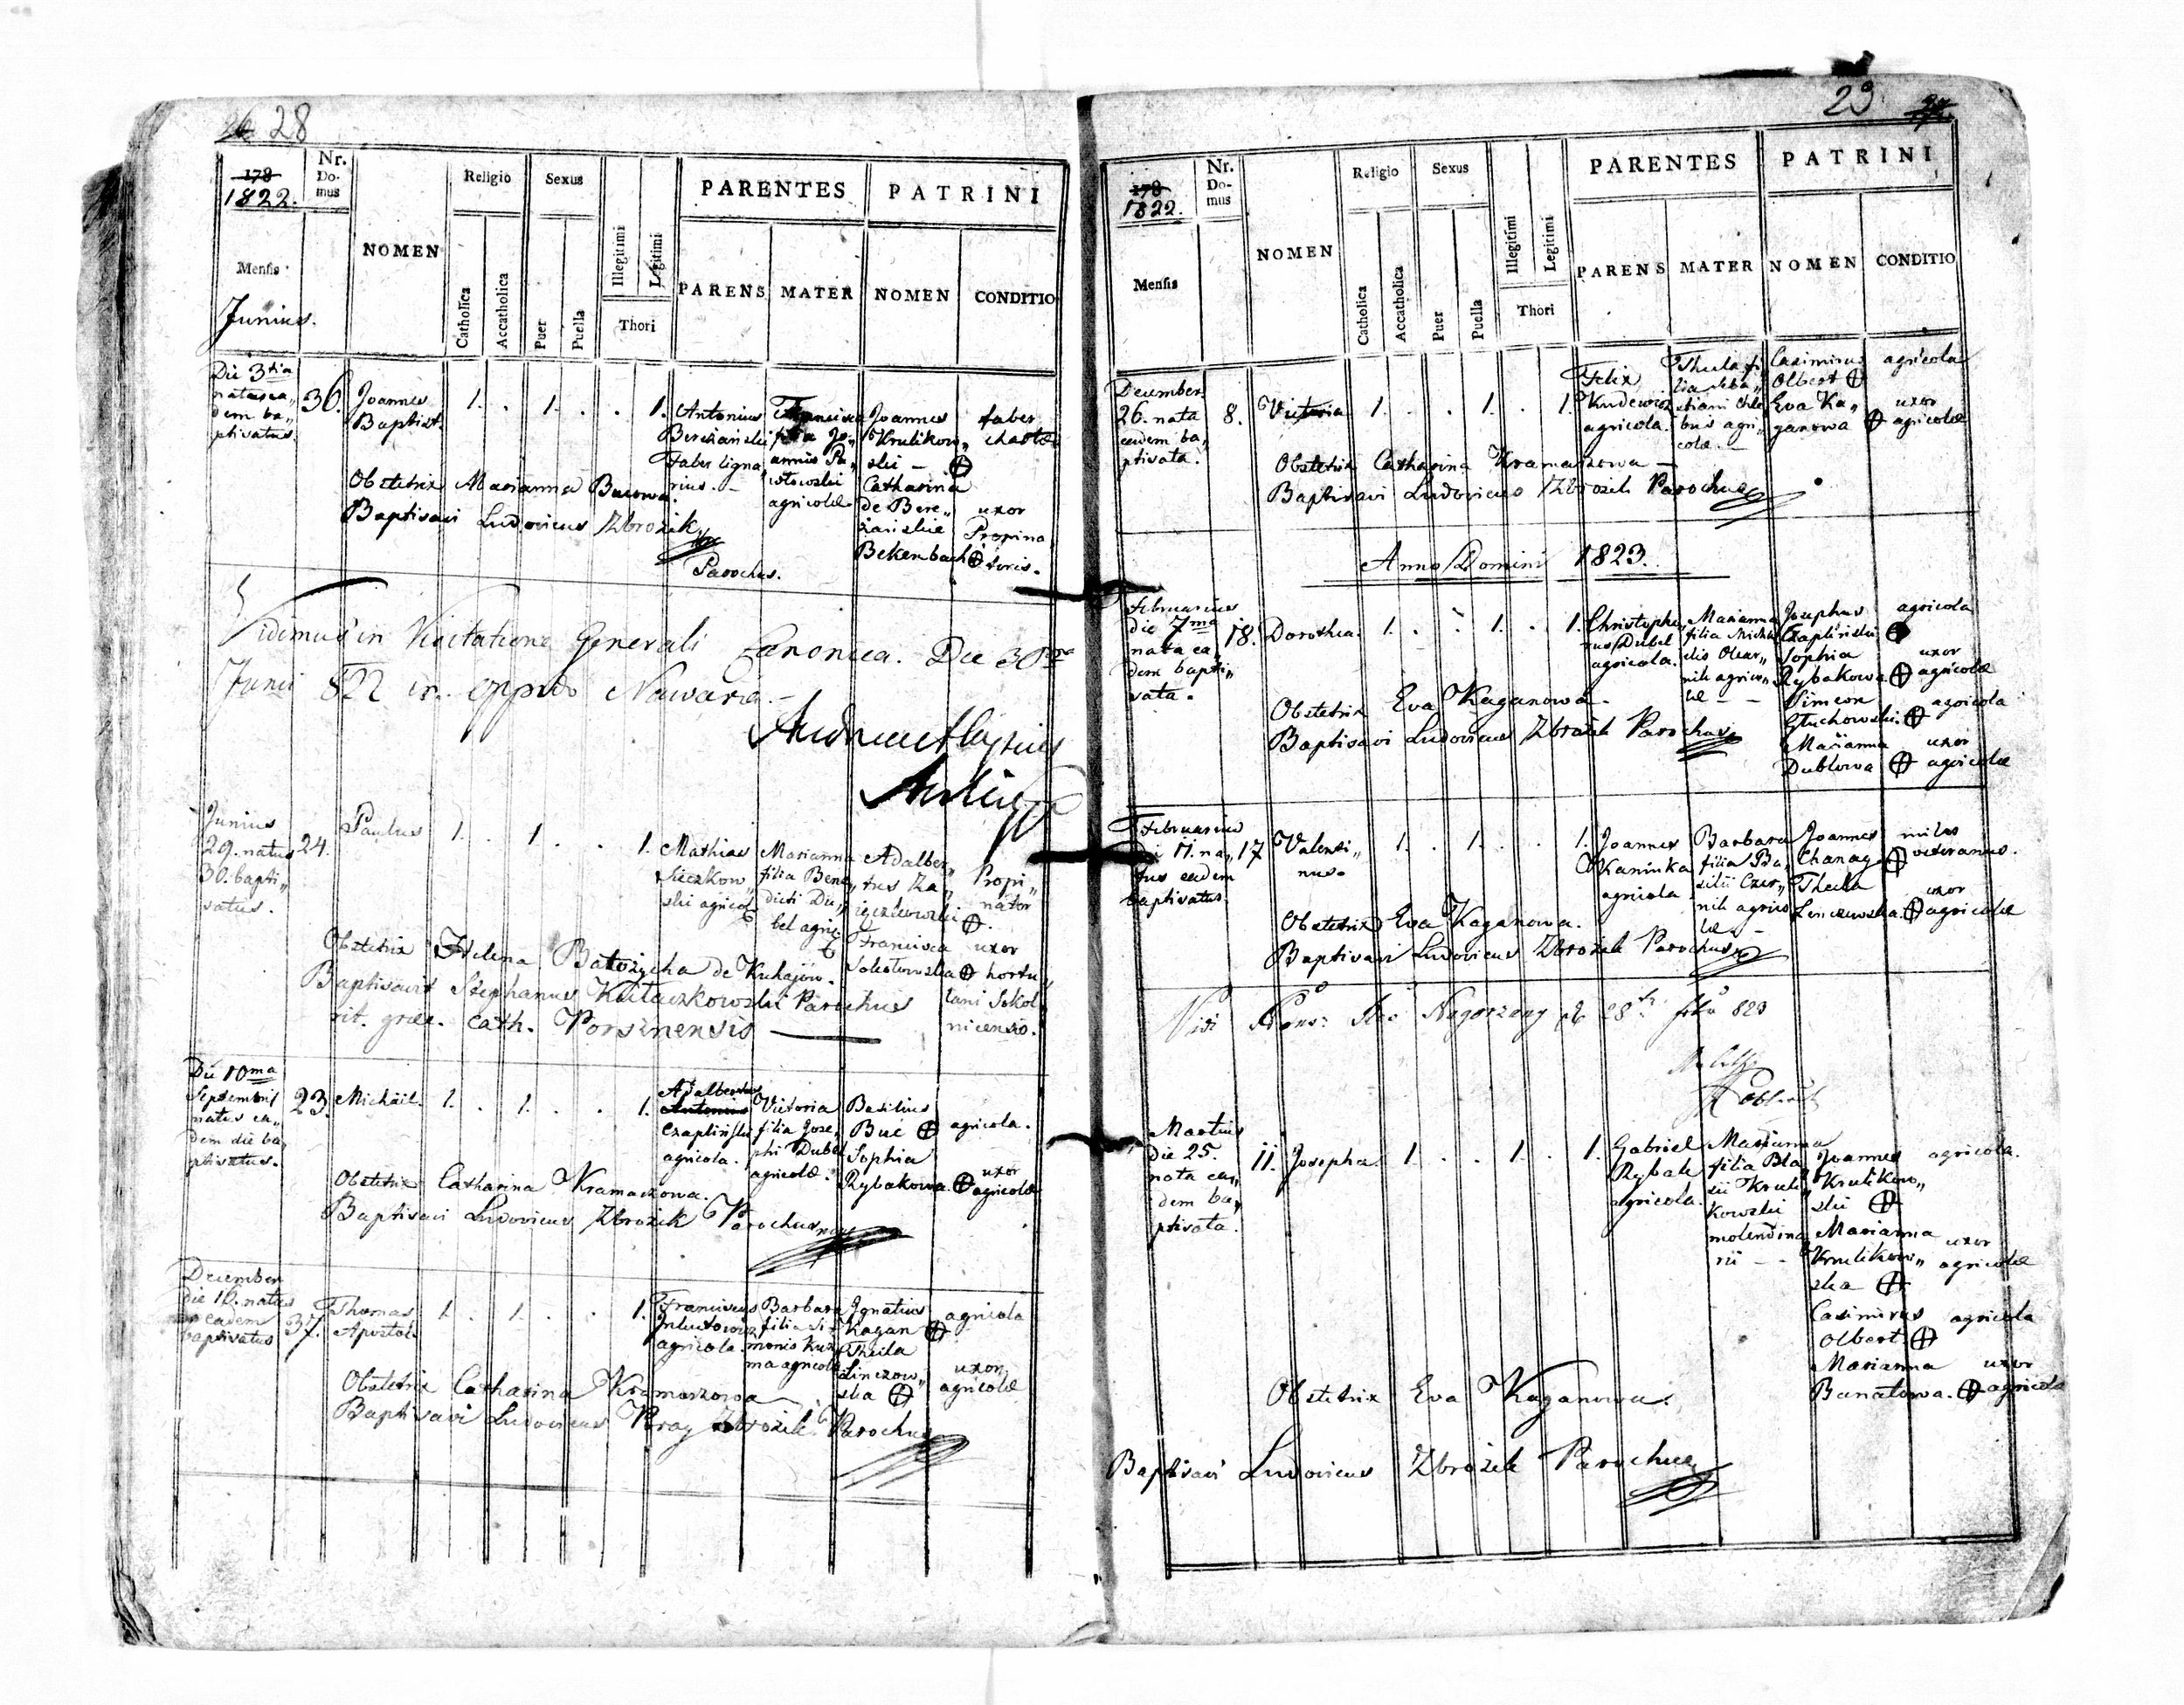 28
178
1822.
Nr.
Do-
mus
NOMEN
Religio
Sexus
Illegitimi
Legitimi
PARENTES
PATRINI
Mensis
Junius.
Catholica
Accatholica
Puer
Puella
Thori
PARENS
MATER
NOMEN
CONDITIO
Die 3tia
natus ea„
dem ba„
ptisatus.
36.
Joannes
Baptist.
1. . 1. . . 1.
Antonius
Bereżański
Faber ligna„
rius. –
Francisca
filia Jo„
annis Pa„
włowski
agricolæ
Joannes
Krulikow„
ski – ⊕
Catharina
de Bere„
żańskie
Bekenbach ⊕
faber
chartæ
uxor
Propina„
toris.
Obstetrix Marianna Bucowa.
Baptisavi Ludovicus Zbrożek
Parochus.
Vidimus in Visitatione Generali Canonica. Die 30ma
Junii 822 in oppido Nawaria. –
Junius
29. natus
30. bapti„
satus.
24.
Paulus
1. . 1. . . 1.
Mathias
Sieczkow„
ski agricolæ
Marianna
filia Bene„
dicti Du„
bel agric
Adalber„
tus Za„
ięczkowski ⊕.
Francisca
Sokołowska ⊕
Propi„
nator
uxor
hortu„
lani Sokol
nicensis.
Obstetrix Helena Batożycha de Kuhajów.
Baptisavit Stephanus Kułaczkowski Parochus
rit. græc. cath. Porsznensis
Die 10ma
Septembris
natus ea„
dem die ba„
ptisatus.
23.
Michael.
1. . 1. . . 1.
Adalbertus
Antonius
Czapliński
agricola.
Victoria
filia Jose„
phi Dubel
agricolæ.
Basilius
Buć ⊕
Sophia
Rybakowa. ⊕
agricola.
uxor
agricolæ
Obstetrix Catharina Kramarzowa.
Baptisavi Ludovicus Zbrożek Parochus
December
die 16. natus
eadem
baptisatus
37.
Thomas
Apostol.
1. . 1. . . 1.
Franciscus
agricola
Barbara
filia Si„
monis Kuź
ma agricolæ
Ignatius
Kagan ⊕
Thecla
Linczow„
ska ⊕
agricola
uxor
agricolæ
Obstetrix Catharina Kramarzowa
Baptisavi Ludovicus Poray Zbrożek Parochus
29
178
1822.
Nr.
Do-
mus
NOMEN
Religio
Sexus
Illegitimi
Legitimi
PARENTES
PATRINI
Mensis
Catholica
Accatholica
Puer
Puella
Thori
PARENS
MATER
NOMEN
CONDITIO
December
26. nata
eadem ba„
ptisata.
8.
Victoria
1. . . 1. . 1.
Felix
Kudewicz
agricola.
Thecla fi„
lia Seba„
stiani Chle
buś agri„
colæ. –
Casimirus
Olbert ⊕
Eva Ka„
ganowa ⊕
agricola
uxor
agricolæ
Obstetrix Catharina Kramarzowa –
Baptisavi Ludovicus Zbrożek Parochus
Anno Domini 1823.
Februarius
die 7ma
nata ea„
dem bapti„
sata.
18.
Dorothea.
1. . . 1. . 1.
Christopho„
rus Dubel
agricola.
Marianna
filia Micha
elis Olear„
nik agrico„
læ – –
Josephus
Czapliński ⊕
Sophia
Rybakowa ⊕
Simeon
Głuchowski. ⊕
Marianna
Dublowa ⊕
agricola
uxor
agricolæ
agricola
uxor
agricolæ
Obstetrix Eva Kaganowa.
Baptisavi Ludovicus Zbrożek Parochus
Februarius
die 11. na„
tus eadem
baptisatus
17
Valenti„
nus.
1. . 1. . . 1.
Joannes
Kaminka
agricola
Barbara
filia Ba„
silii Czer„
nik agrico
læ. –
Joannes
Chanag ⊕
Thecla
Linczowska. ⊕
miles
veteranus.
uxor
agricolæ
Obstetrix Eva Kaganowa.
Baptisavi Ludovicus Zbrożek Parochus
Martius
die 25.
nata ea„
dem ba„
ptisata.
11.
Josepha.
1. . . 1. . 1.
Gabriel
Rybak
agricola.
Marianna
filia Bla
sii Kruli„
kowski
molendina„
rii – –
Joannes
Krulikow„
ski ⊕
Marianna
Krulikow„
ska ⊕
Casimirus
Olbert ⊕
Marianna
Banatowa. ⊕
agricola.
uxor
agricolæ
agricola
uxor
agricolæ
Obstetrix Eva Kaganowa.
Baptisavi Ludovicus Zbrożek Parochus